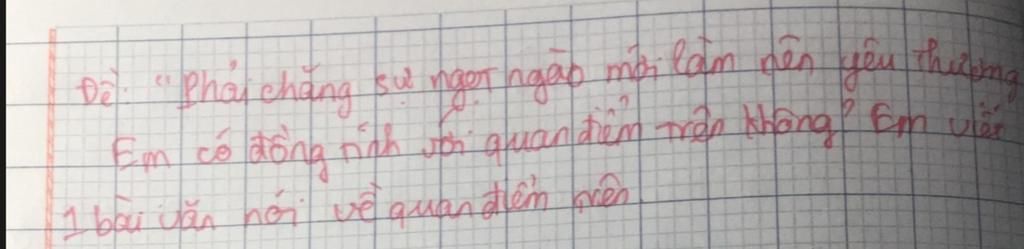 Đề: "Phải chăng sự ngọt ngào mới làm nên yêu thương
Em có đồng tình với quan điểm trên không? Em viết
1 bài văn nói về quan điểm trên.